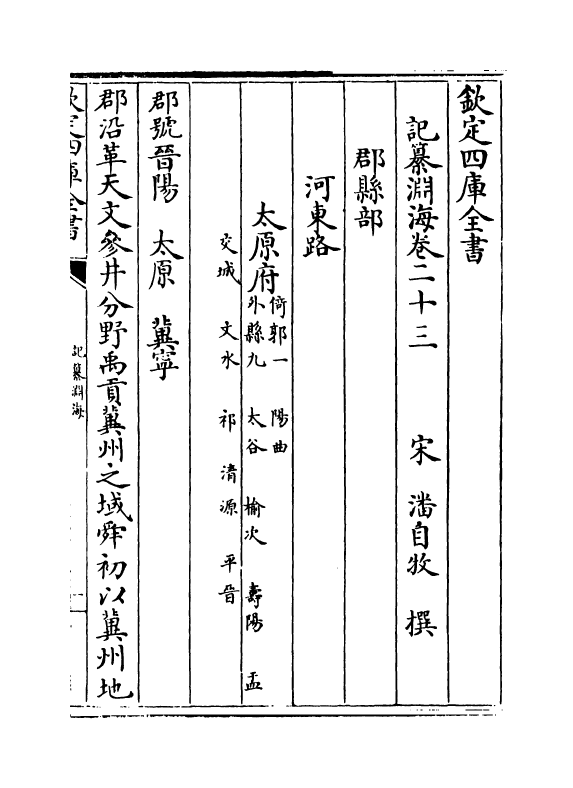 欽定四庫全書
記纂淵海卷二十三 宋 潘自牧 撰
郡縣部
河東路
太原府
倚郭一 陽曲
外縣九 太谷 榆次 壽陽 盂
交城 文水 祁 清源 平晉
郡號晉陽 太原 冀寧
郡沿革天文參井分野禹貢冀州之域舜初以冀州地
欽定四庫全書
記纂淵海